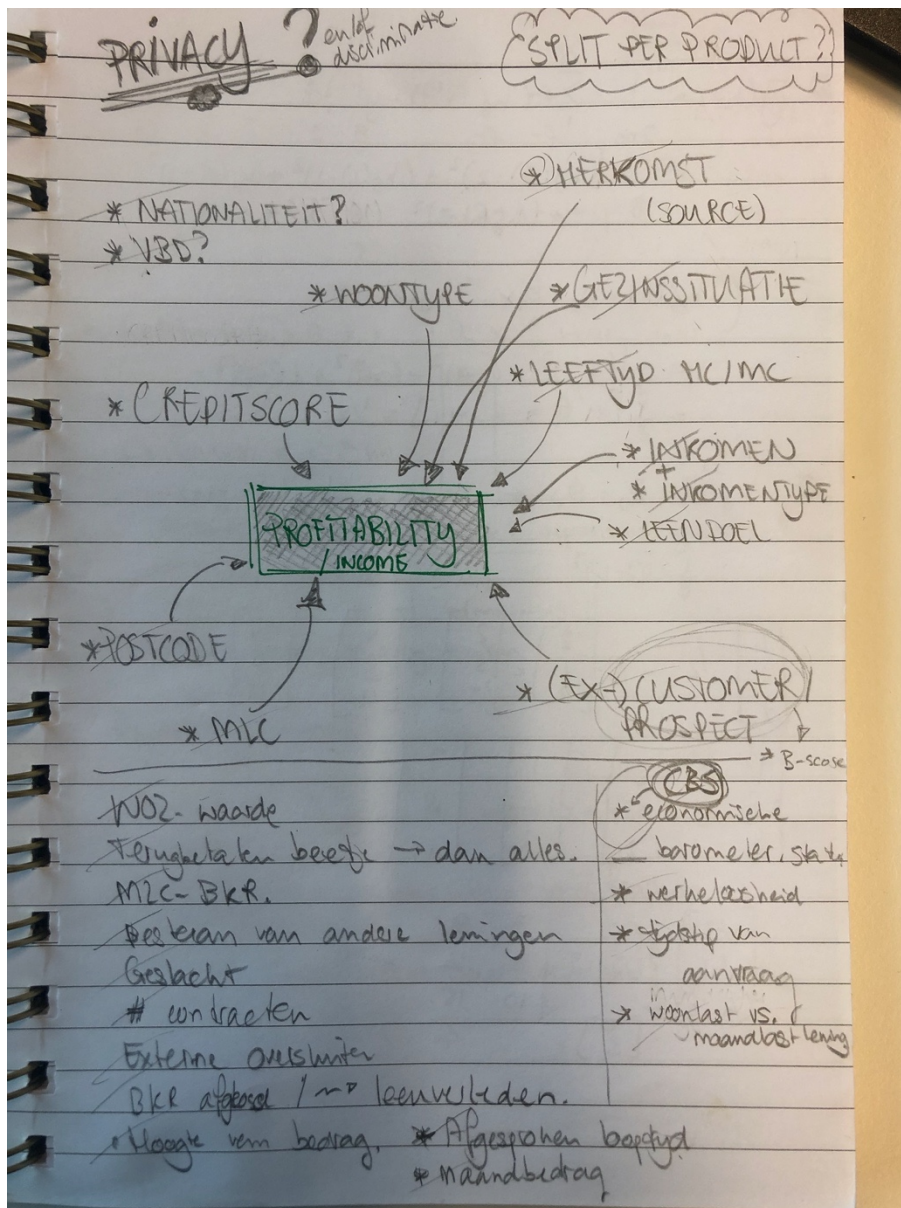 PRIVACY ? en/of
discriminatie.
SPLIT PER PRODUCT??
* HERKOMST
(SOURCE)
* NATIONALITEIT?
* VBD?
* WOONTYPE
* GEZINSSITUATIE
* LEEFTYD HC/MC
* CREDITSCORE
* INKOMEN
+
* INKOMENTYPE
* LEENDOEL
PROFITABILITY
/ INCOME
* POSTCODE
* (EX-) CUSTOMER/
PROSPECT
* MLC
→ B-score
WOZ- waarde
Terugbetalen → dan alles.
MLC- BKR.
Bestaan van andere leningen
Geslacht
# contracten
Externe oversluiter
BKR afgelost / ~→ leenverleden.
Hoogte van bedrag.
* Afgesproken looptyd
* maandbedrag
CBS
* economische
barometer, stats
* werkeloosheid
* tijdstip van
aanvraag
* woonlast vs.
maandlast lening